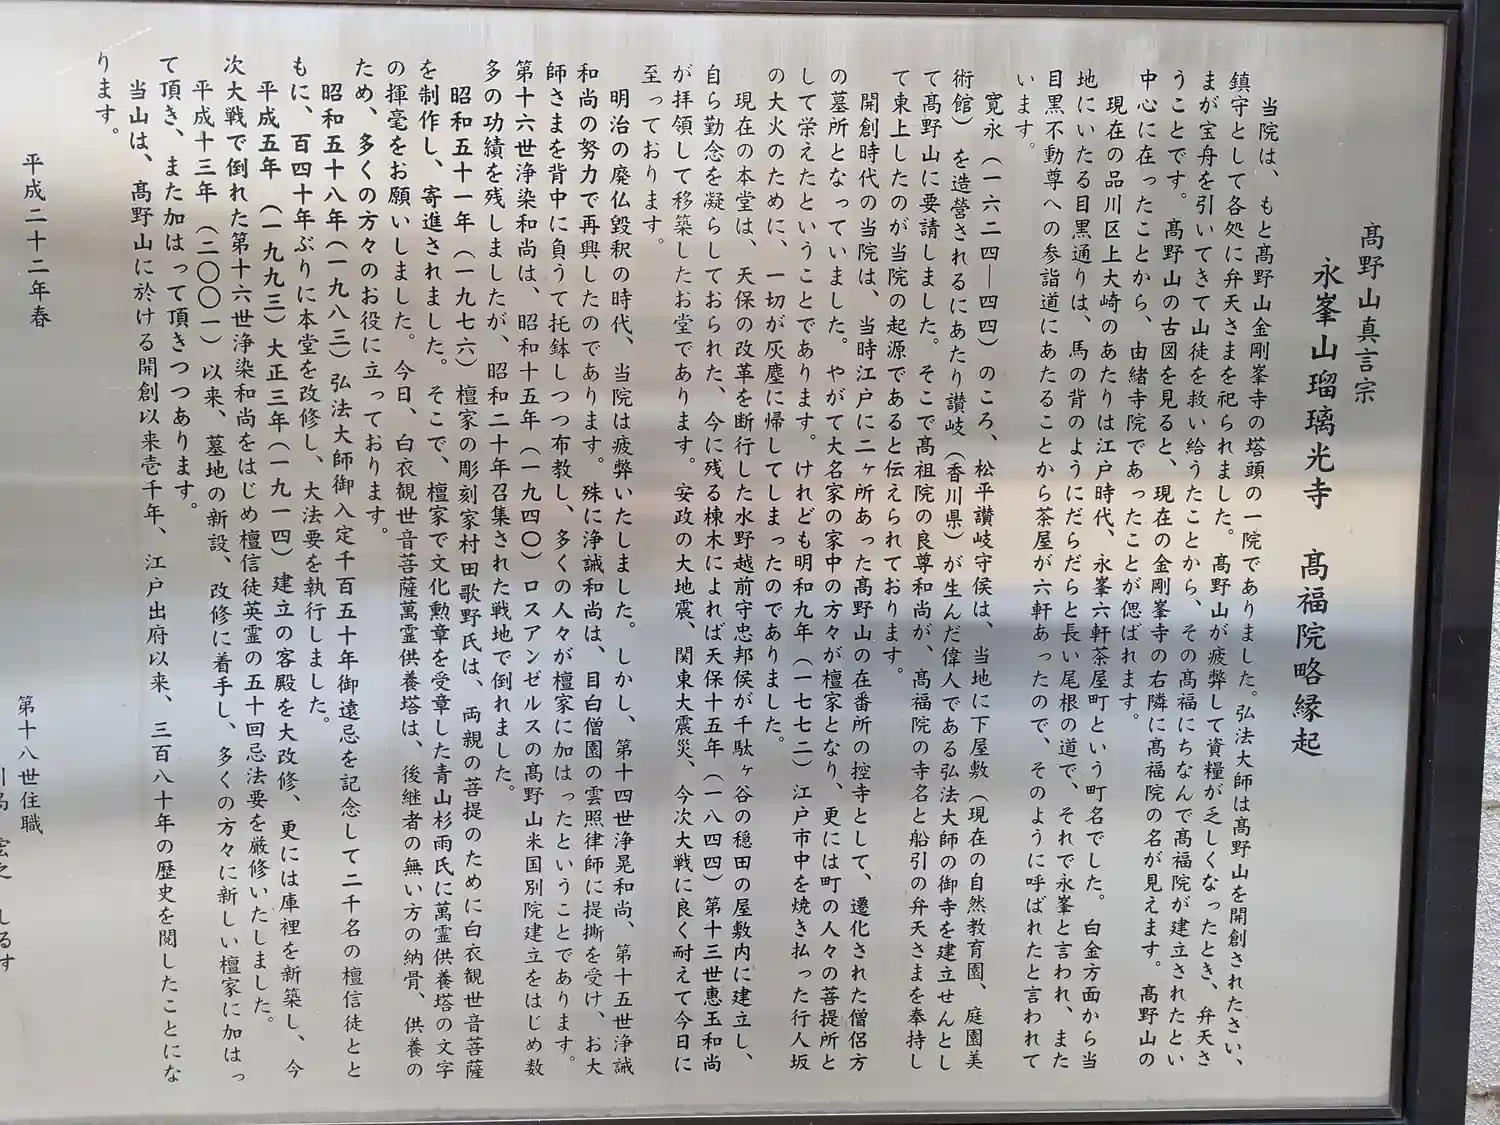 高野山真言宗
永峯山瑠璃光寺　高福院略縁起
当院は、もと高野山金剛峯寺の塔頭の一院でありました。弘法大師は高野山を開創されたさい、
鎮守として各処に弁天さまを祀られました。高野山が疲弊して資糧が乏しくなったとき、弁天さ
まが宝舟を引いてきて山徒を救い給うたことから、その高福にちなんで高福院が建立されたとい
うことです。高野山の古図を見ると、現在の金剛峯寺の右隣に高福院の名が見えます。高野山の
中心に在ったことから、由緒寺院であったことが偲ばれます。
現在の品川区上大崎のあたりは江戸時代、永峯六軒茶屋町という町名でした。白金方面から当
地にいたる目黒通りは、馬の背のようにだらだらと長い尾根の道で、それで永峯と言われ、また
目黒不動尊への参詣道にあたることから茶屋が六軒あったので、そのように呼ばれたと言われて
います。
寛永（一六二四―四四）のころ、松平讃岐守侯は、当地に下屋敷（現在の自然教育園、庭園美
術館）を造営されるにあたり讃岐（香川県）が生んだ偉人である弘法大師の御寺を建立せんとし
て高野山に要請しました。そこで高祖院の良尊和尚が、高福院の寺名と船引の弁天さまを奉持し
て東上したのが当院の起源であると伝えられております。
開創時代の当院は、当時江戸に二ヶ所あった高野山の在番所の控寺として、遷化された僧侶方
の墓所となっていました。やがて大名家の家中の方々が檀家となり、更には町の人々の菩提所と
して栄えたということであります。けれども明和九年（一七七二）江戸市中を焼き払った行人坂
の大火のために、一切が灰塵に帰してしまったのでありました。
現在の本堂は、天保の改革を断行した水野越前守忠邦侯が千駄ヶ谷の穏田の屋敷内に建立し、
自ら勤念を凝らしておられた、今に残る棟木によれば天保十五年（一八四四）第十三世惠玉和尚
が拝領して移築したお堂であります。安政の大地震、関東大震災、今次大戦に良く耐えて今日に
至っております。
明治の廃仏毀釈の時代、当院は疲弊いたしました。しかし、第十四世浄晃和尚、第十五世浄誠
和尚の努力で再興したのであります。殊に浄誠和尚は、目白僧園の雲照律師に提撕を受け、お大
師さまを背中に負うて托鉢しつつ布教し、多くの人々が檀家に加はったということであります。
第十六世浄染和尚は、昭和十五年（一九四〇）ロスアンゼルスの高野山米国別院建立をはじめ数
多の功績を残しましたが、昭和二十年召集された戦地で倒れました。
昭和五十一年（一九七六）檀家の彫刻家村田歌野氏は、両親の菩提のために白衣観世音菩薩
を制作し、寄進されました。そこで、檀家で文化勲章を受章した青山杉雨氏に萬霊供養塔の文字
の揮毫をお願いしました。今日、白衣観世音菩薩萬霊供養塔は、後継者の無い方の納骨、供養の
ため、多くの方々のお役に立っております。
昭和五十八年（一九八三）弘法大師御入定千百五十年御遠忌を記念して二千名の檀信徒とと
もに、百四十年ぶりに本堂を改修し、大法要を執行しました。
平成五年　（一九九三）大正三年（一九一四）建立の客殿を大改修、更には庫裡を新築し、今
次大戦で倒れた第十六世浄染和尚をはじめ檀信徒英霊の五十回忌法要を厳修いたしました。
平成十三年　（二〇〇一）以来、墓地の新設、改修に着手し、多くの方々に新しい檀家に加はっ
て頂き、また加はって頂きつつあります。
当山は、高野山に於ける開創以来壱千年、江戸出府以来、三百八十年の歴史を閲したことにな
ります。
平成二十二年春
第十八世住職
しるす